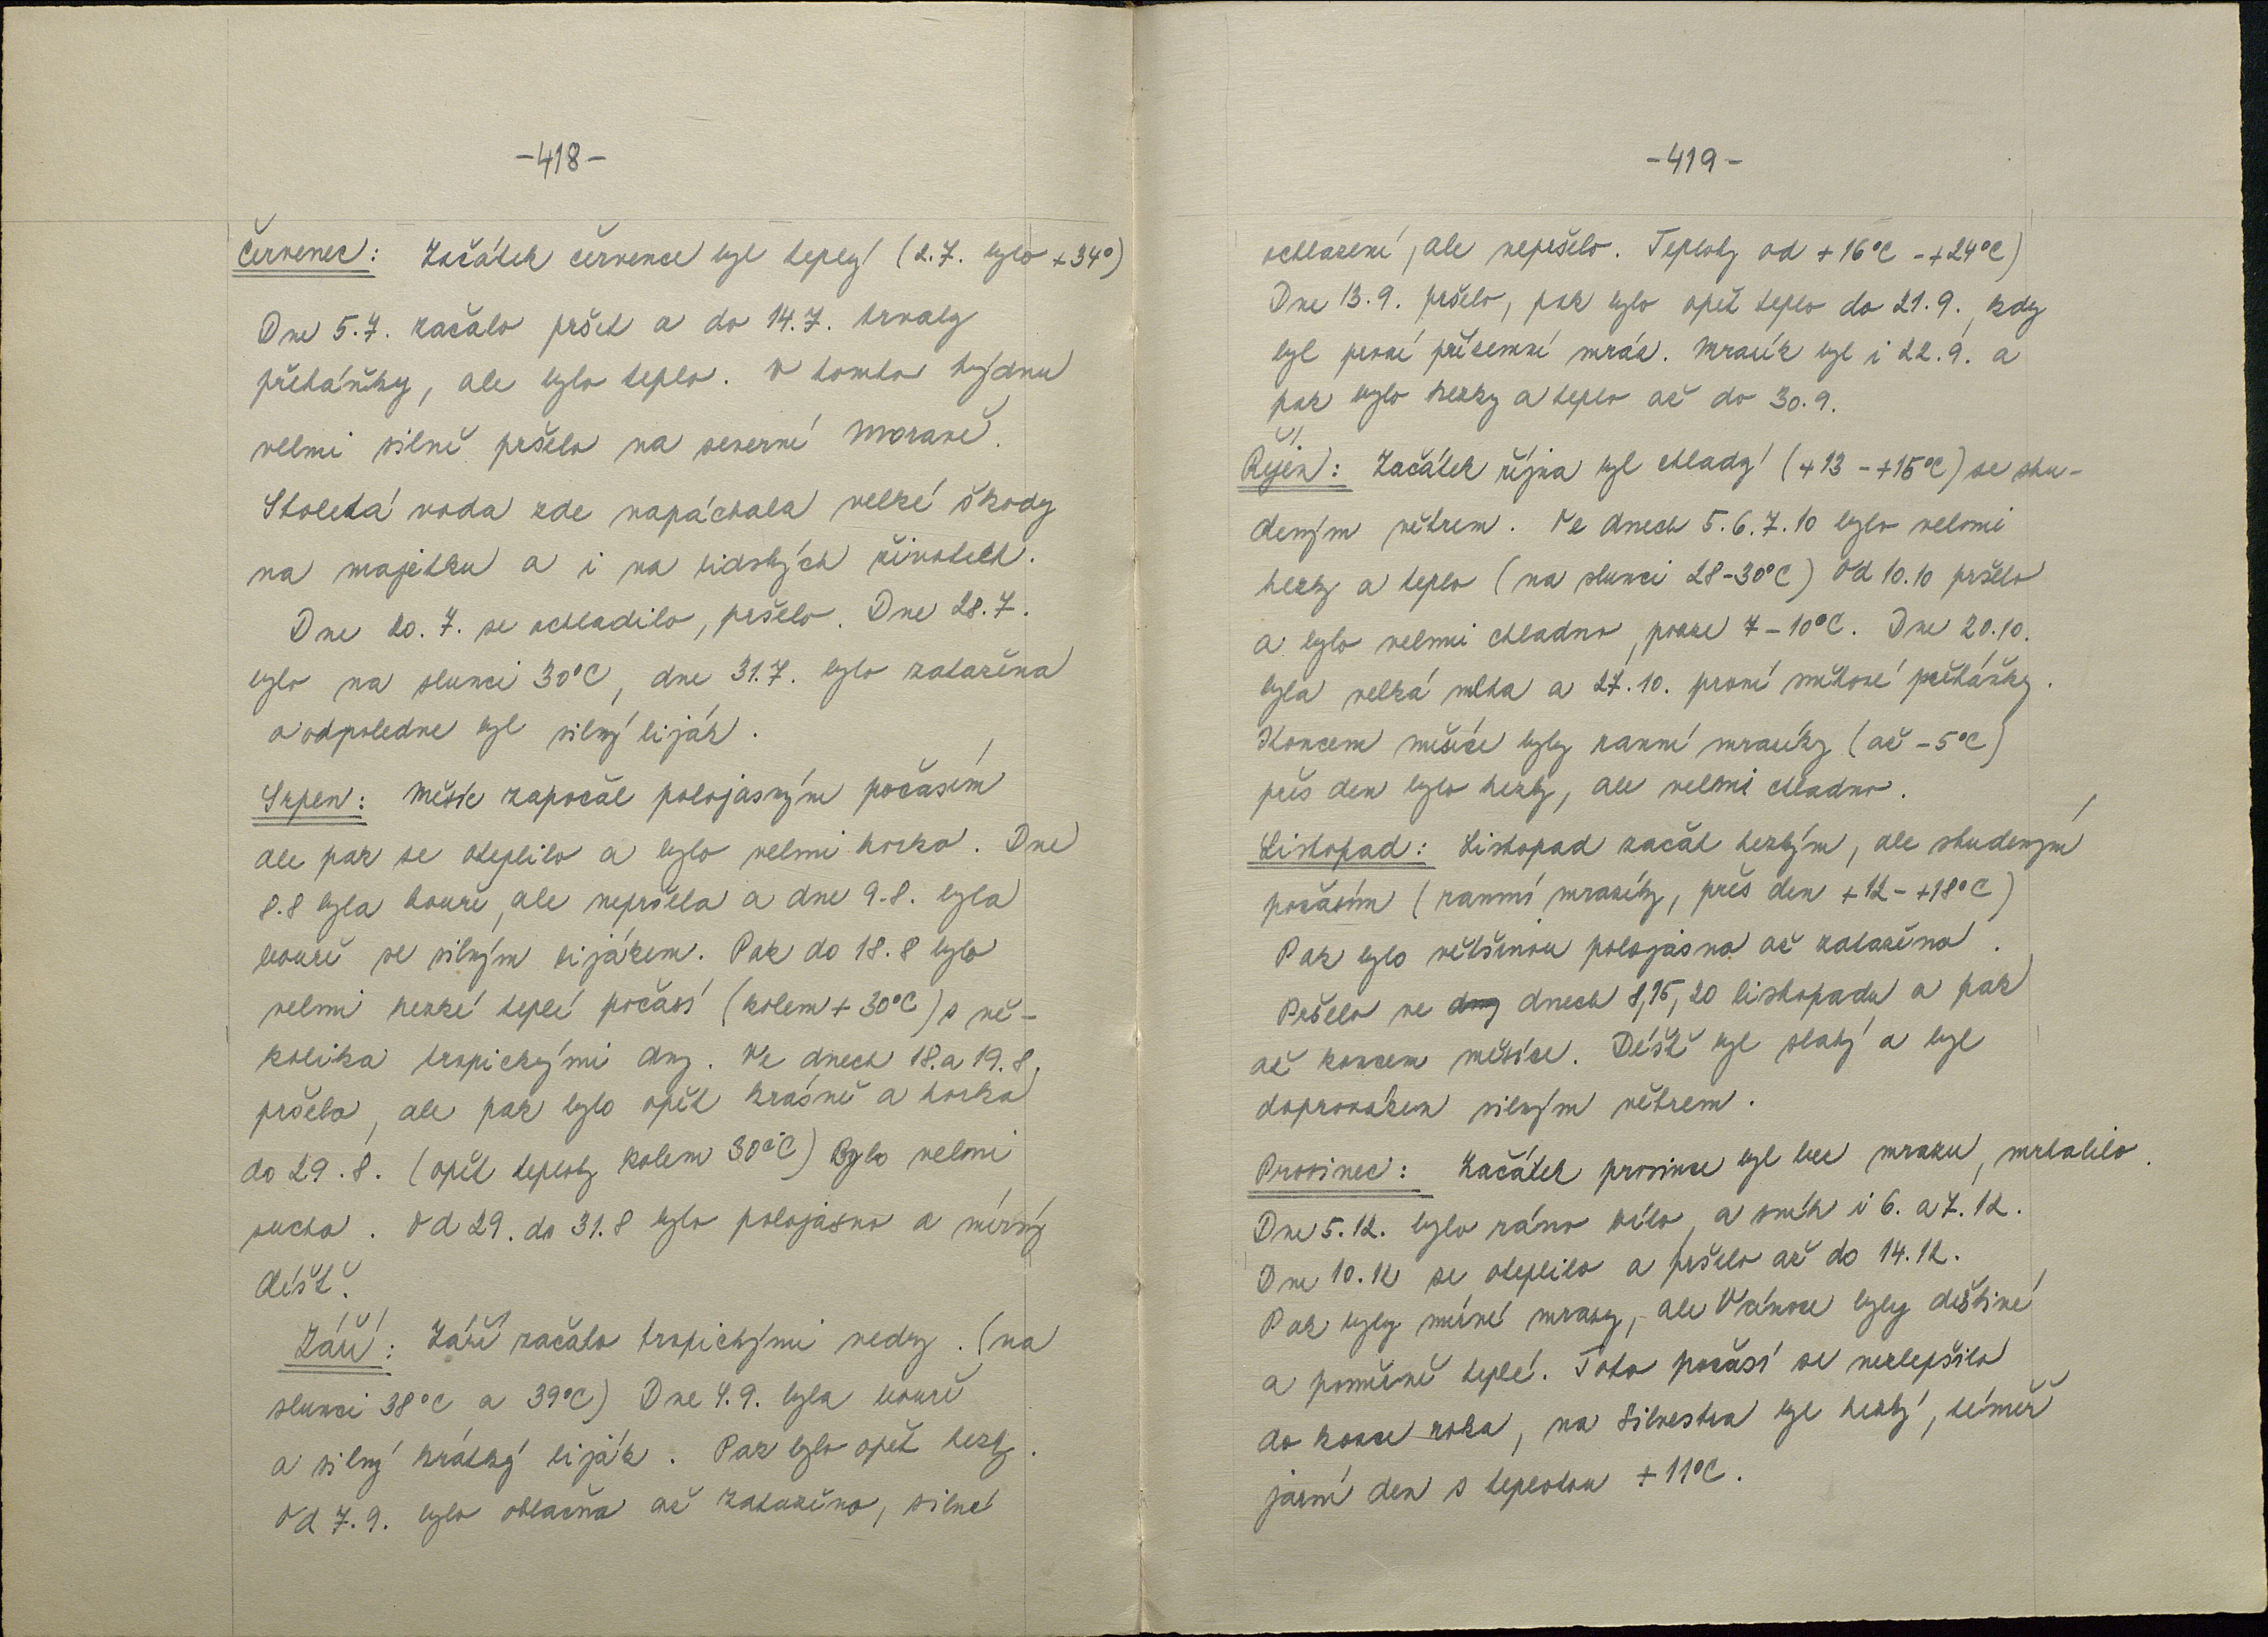 -418-
Červenec: Začátek července byl teplý (2.7. bylo +34°)
Dne 5.7. začalo pršet a do 14.7. trvaly
přeháňky, ale bylo teplo. V tomto týdnu
velmi silně pršelo na severní Moravě.
Stoletá voda zde napáchala velké škody
na majetku a i na lidských životech.
Dne 20.7. se ochladilo, pršelo. Dne 28.7.
bylo na slunci 30°C, dne 31.7. bylo zataženo
a odpoledne byl silný liják.
Srpen: Měsíc započal polojasným počasím
ale pak se oteplilo a bylo velmi horko. Dne
8.8 byla bouře, ale nepršelo a dne 9.8. byla
bouře se silným lijákem. Pak do 18.8 bylo
velmi hezké teplé počasí (kolem +30°C) s ně-
kolika tropickými dny. Ve dnech 18. a 19.8.
pršelo, ale pak bylo opět krásně a horko
do 29.8. (opět teploty kolem 30°C) Bylo velmi
sucho. Od 29. do 31.8 bylo polojasno a mírný
déšť.
Září: Září začalo tropickými vedry. (na
slunci 38°C a 39°C) Dne 4.9. byla bouře
a silný krátký liják. Pak bylo opět hezky.
Od 7.9. bylo oblačno až zataženo, silné
-419-
ochlazení, ale nepršelo. Teploty od +16°C - +24°C)
Dne 13.9. pršelo, pak bylo opět teplo do 21.9., kdy
byl první přízemní mráz. Mrazík byl i 22.9. a
pak bylo hezky a teplo až do 30.9.
Říjen: Začátek října byl chladný (+13 - +15°C) se stu-
deným větrem. Ve dnech 5.6.7.10 bylo velmi
hezky a teplo (na slunci 28-30°C) Od 10.10 pršelo
a bylo velmi chladno, pouze 7-10°C. Dne 20.10.
byla velká mlha a 27.10. první sněhové přeháňky.
Koncem měsíce byly ranní mrazíky (až -5°C)
přes den bylo hezky, ale velmi chladno.
Listopad: Listopad začal hezkým, ale studeným
počasím (ranní mrazíky, přes den +12 - +18°C)
Pak bylo většinou polojasno až zataženo.
Pršelo ve dny dnech 8,15,20 listopadu a pak
až koncem měsíce. Déšť byl slabý a byl
doprovázen silným větrem.
Prosinec: Začátek prosince byl bez mrazu, mrholilo.
Dne 5.12. bylo ráno bílo, a sníh i 6. a 7.12.
Dne 10.12 se oteplilo a pršelo až do 14.12.
Pak byly mírné mrazy, ale Vánoce byly deštivé
a poměrně teplé. Toto počasí se nezlepšilo
do konce roku, na Silvestra byl hezký, téměř
jarní den s teplotou +11°C.